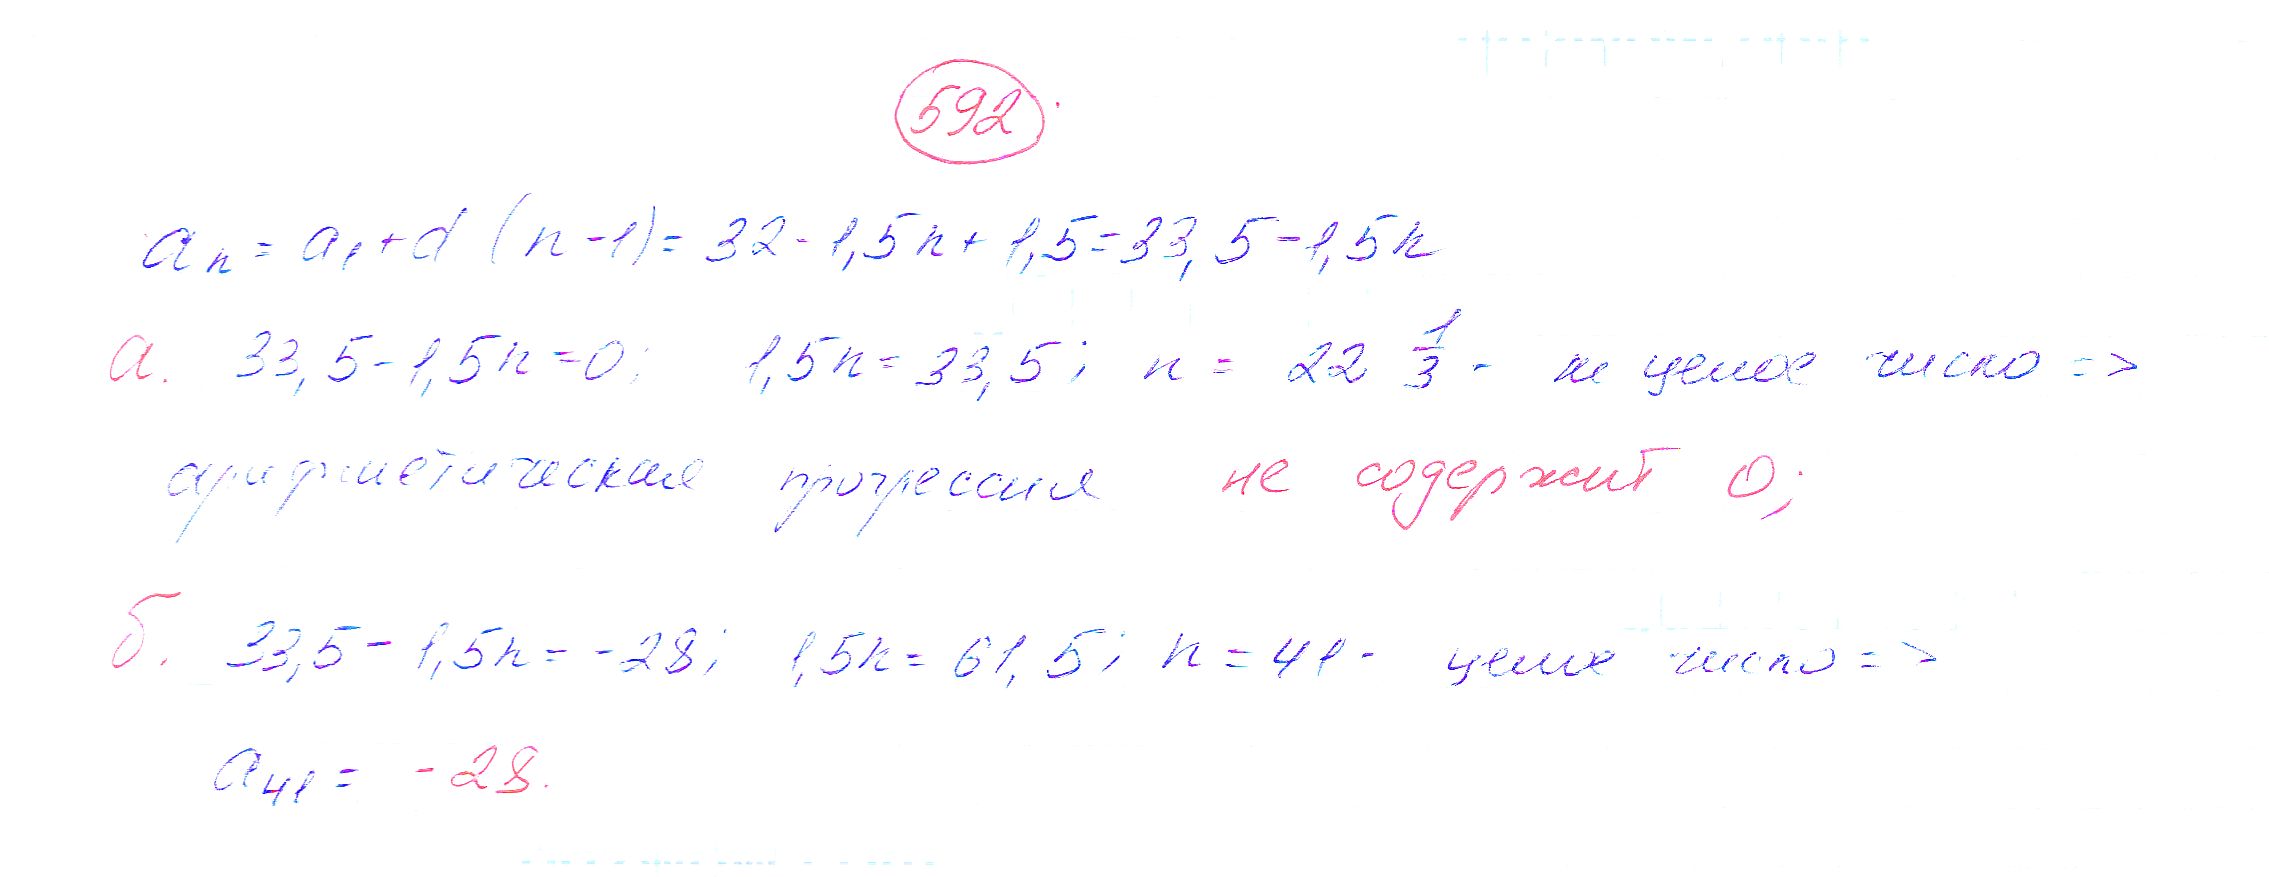 592
aₙ = a₁ + d (n - 1) = 32 - 1,5n + 1,5 = 33,5 - 1,5n
а. 33,5 - 1,5n = 0; 1,5n = 33,5; n = 22 1/3 - не целое число =>
арифметическая прогрессия не содержит 0;
б. 33,5 - 1,5n = -28; 1,5n = 61,5; n = 41 - целое число =>
a₄₁ = -28.